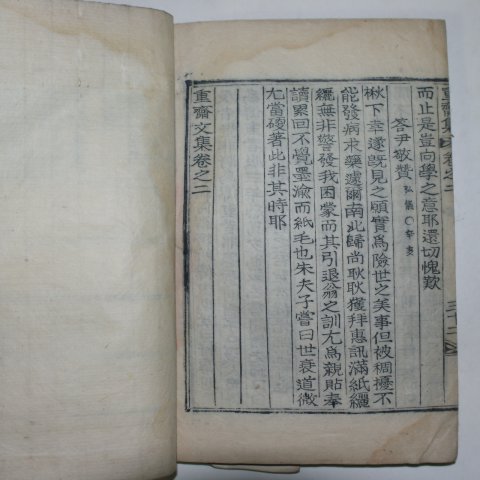 重齋集 卷之二
而止是豈向學之意耶還切愧歎
答尹敬贊 弘儀〇辛亥
楸下幸遂旣見之願實爲險世之美事但被稠擾不
能發病求藥遽爾南北歸尚耿耿獲拜惠訊滿紙纚
纚無非警發我困蒙而其引退翁之訓尤爲親貼奉
讀累回不覺墨渝而紙毛也朱夫子嘗曰世衰道微
尤當硬著此非其時耶
重齋文集卷之二